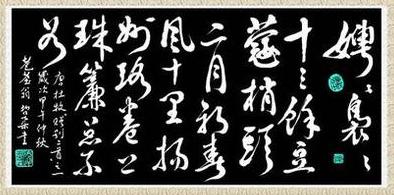 娉〻裊〻
十三餘豆
蔻梢頭
二月初春
風十里揚
州路卷上
珠簾總不
如
唐杜牧贈別二首之一
歲次甲午仲秋